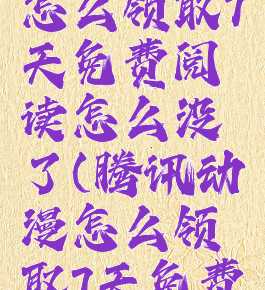 怎么领取7
天免费阅
读怎么没
了(腾讯动
漫怎么领
取7天免费